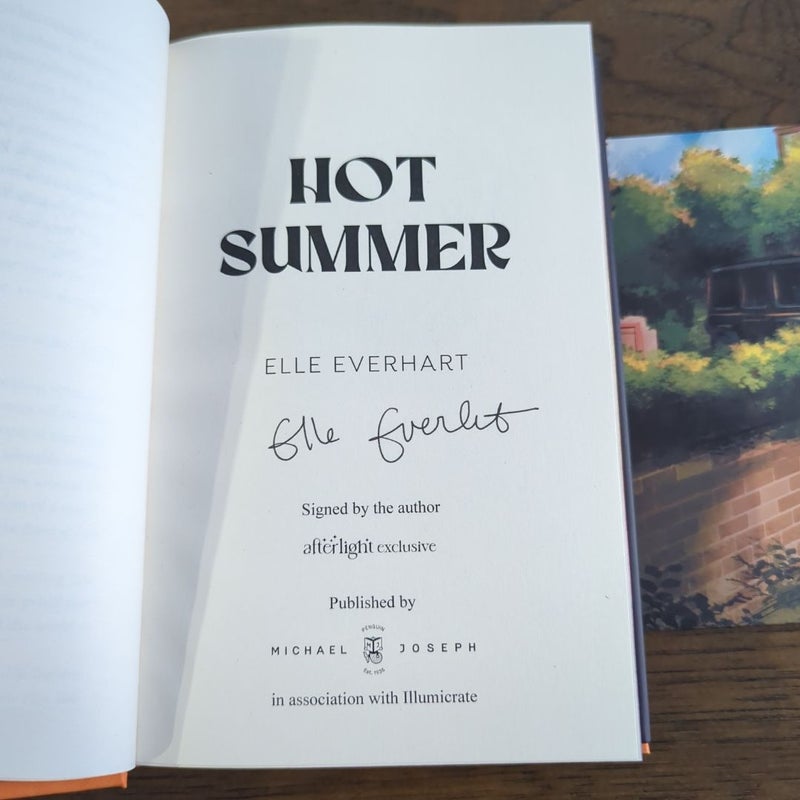 HOT
SUMMER
ELLE EVERHART
Elle Everhart
Signed by the author
afterlight exclusive
Published by
PENGUIN
MICHAEL MJ JOSEPH
Est. 1935
in association with Illumicrate